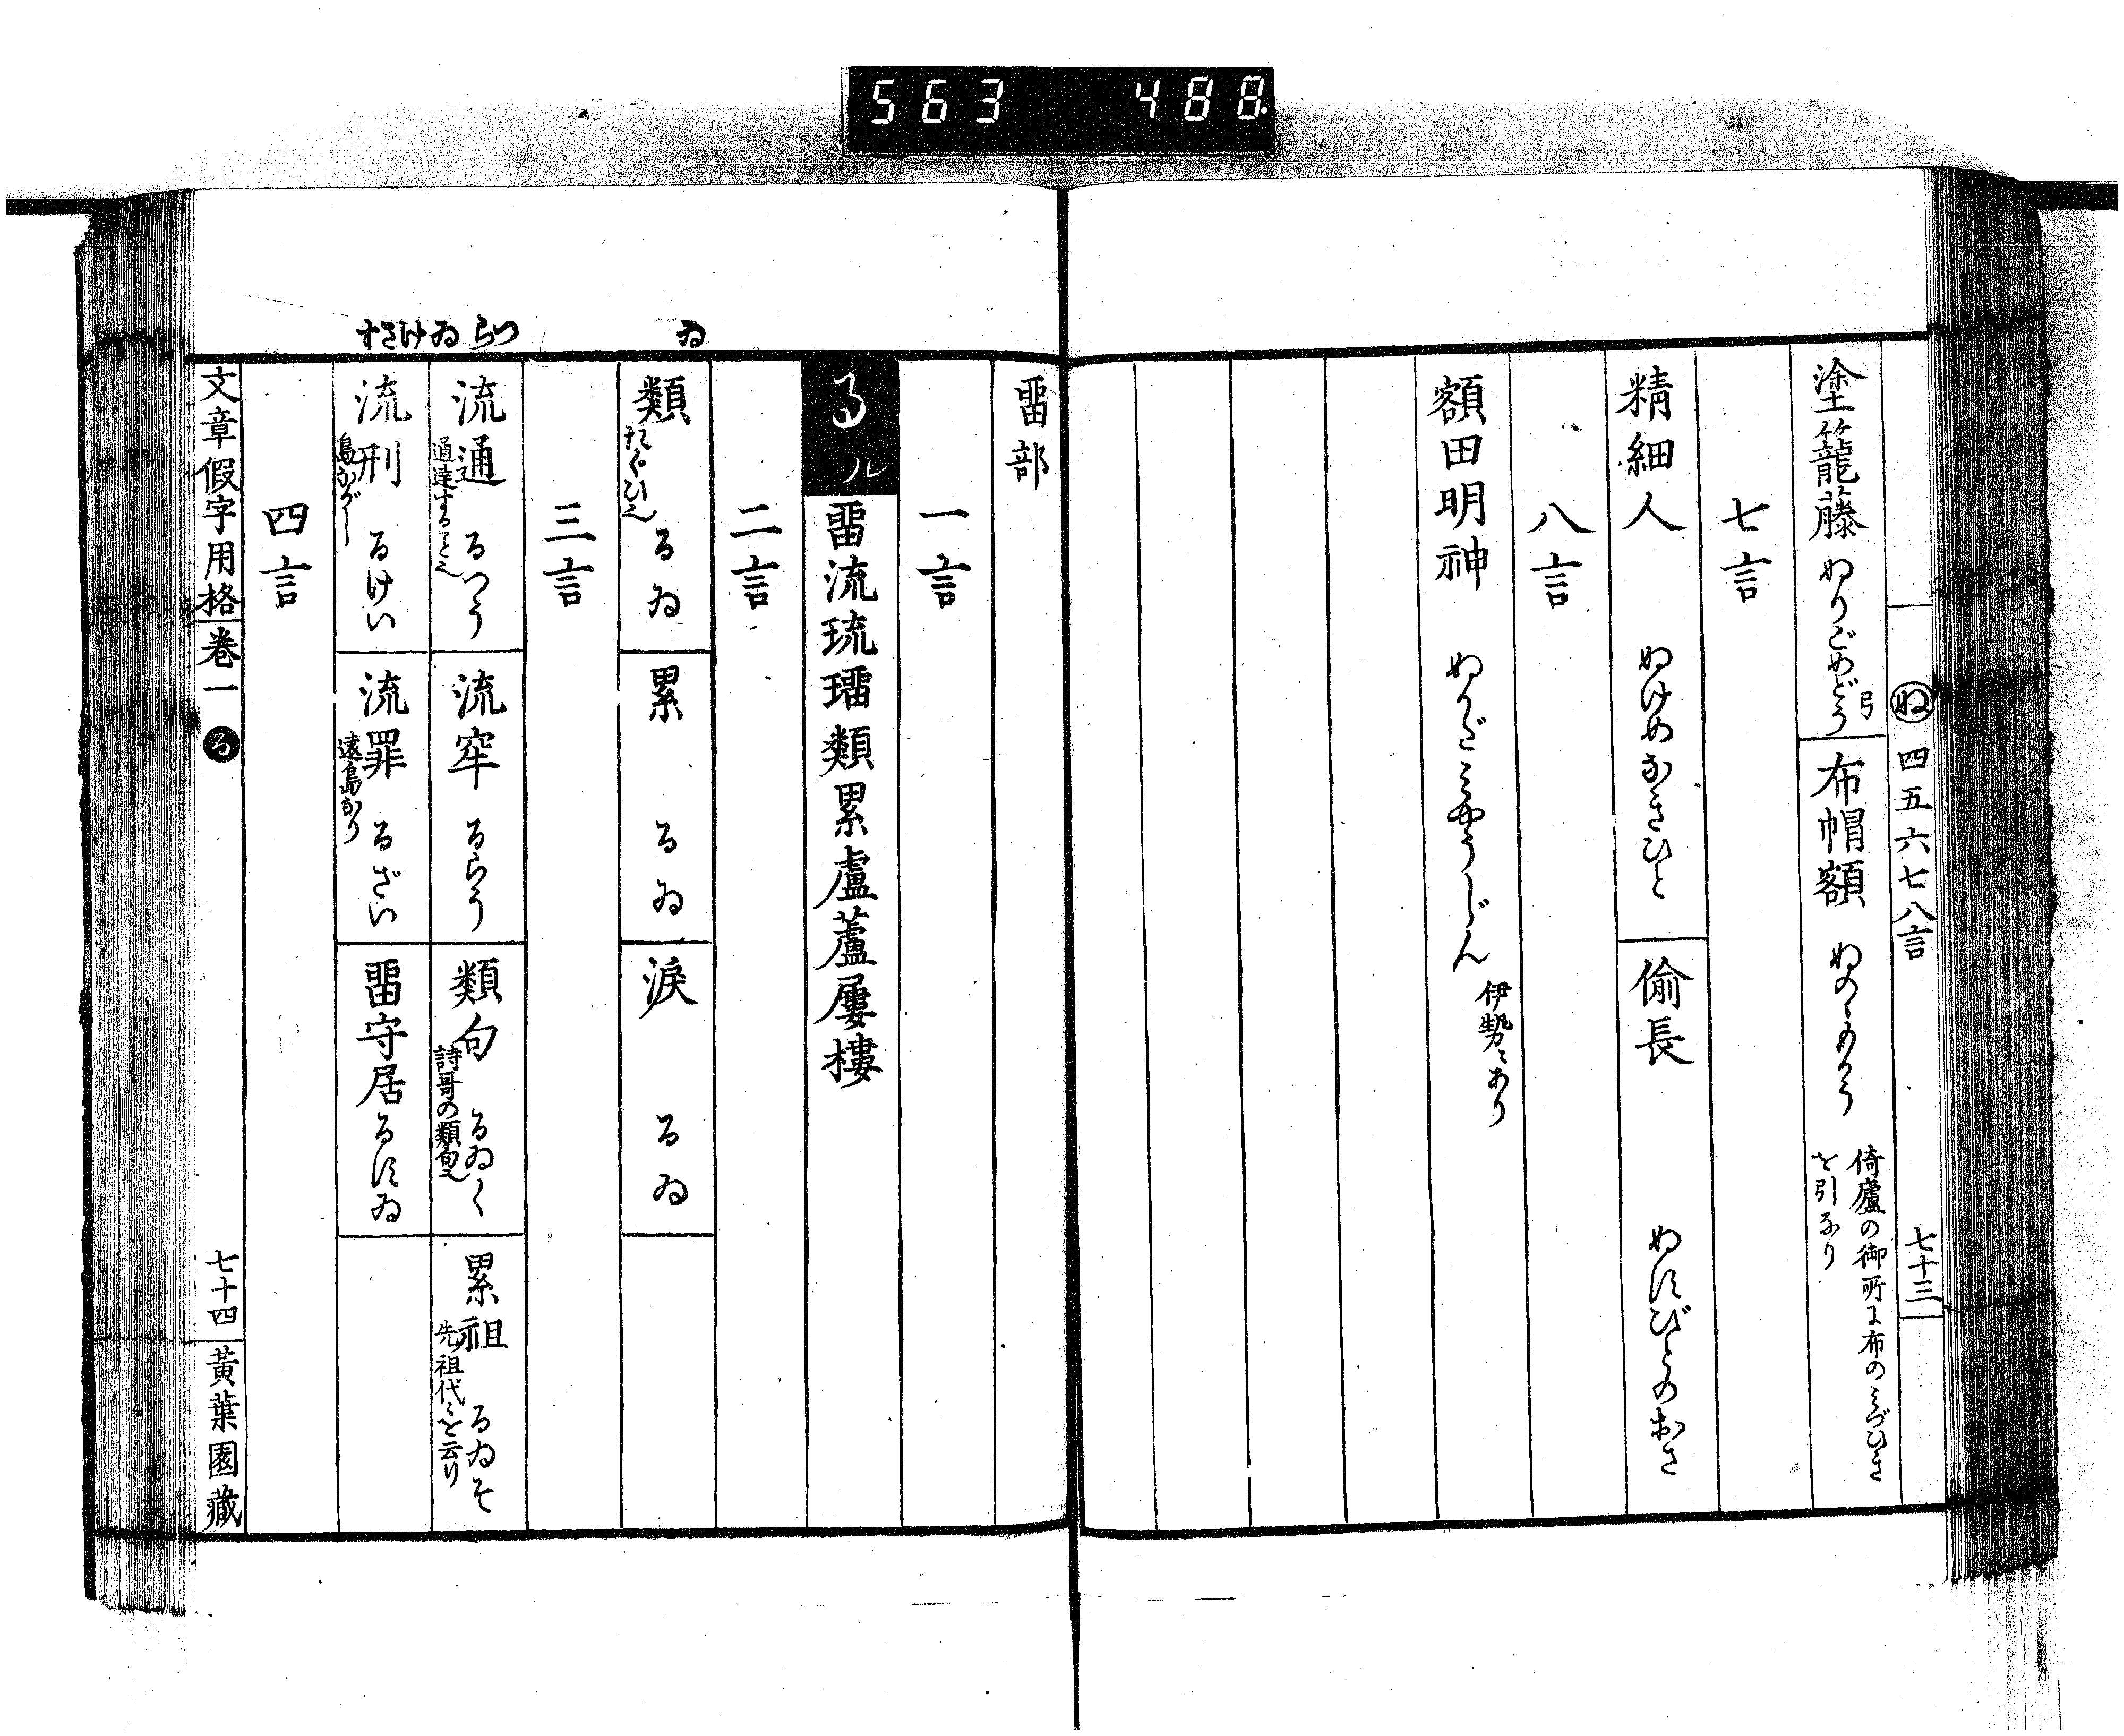 563 488.
ぬ 四五六七八言 七十三
塗籠藤 ぬりごめどう 弓
布帽額 ぬのゝもかう 倚廬の御所に布のミづひき
を引なり
七言
精細人 ぬけめなきひと
偷長 ぬすびとのおさ
八言
額田明神 ぬかだミやうじん 伊勢ニあり
畱部
一言
る ル 畱流琉璢類累盧蘆屢樓
二言
ゐ
類 たぐひ也 るゐ
累 るゐ
淚 るゐ
三言
つらゐけさす
流通 通達すること也 るつう
流牢 るらう
類句 詩哥の類句也 るゐく
累祖 先祖代ミを云り るゐそ
流刑 島ながし るけい
流罪 遠島なり るざい
畱守居 るすゐ
四言
文章假字用格 卷一 る 七十四 黃葉園藏